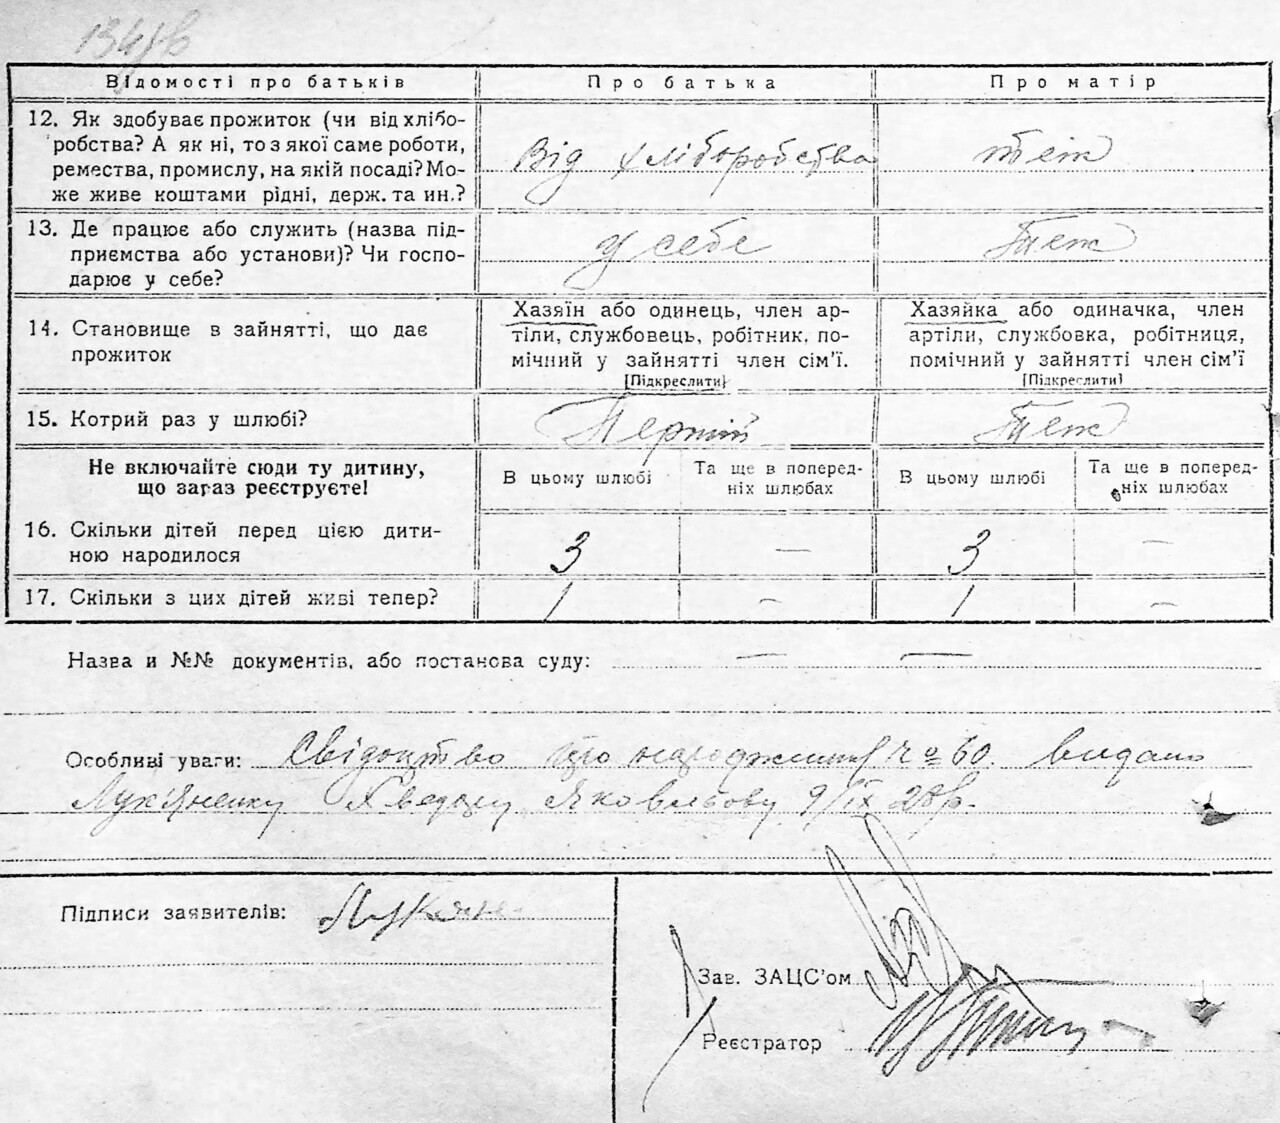 134/в
Відомості про батьків Про батька Про матір
12. Як здобуває прожиток (чи від хлібо-
робства? А як ні, то з якої саме роботи,
ремества, промислу, на якій посаді? Мо-
же живе коштами рідні, держ. та ин.?
Від хліборобства теж
13. Де працює або служить (назва під-
приємства або установи)? Чи госпо-
дарює у себе?
у себе Теж
14. Становище в зайнятті, що дає
прожиток
Хазяїн або одинець, член ар-
тіли, службовець, робітник, по-
мічний у зайнятті член сім’ї.
[Підкреслити]
Хазяйка або одиначка, член
артіли, службовка, робітниця,
помічний у зайнятті член сім’ї
[Підкреслити]
15. Котрий раз у шлюбі? Перший Теж
Не включайте сюди ту дитину,
що зараз реєструєте!
В цьому шлюбі
Та ще в поперед-
ніх шлюбах
В цьому шлюбі
Та ще в поперед-
ніх шлюбах
16. Скільки дітей перед цією дити-
ною народилося
3 — 3 —
17. Скільки з цих дітей живі тепер? 1 — 1 —
Назва и №№ документів, або постанова суду: — —
Особливі уваги: Свідоцтво про народження № 60 видано
Лук'яненку Хведору Яковльову 9/IX 28р.
Підписи заявителів: Лукяне-
Зав. ЗАЦС’ом
Реєстратор